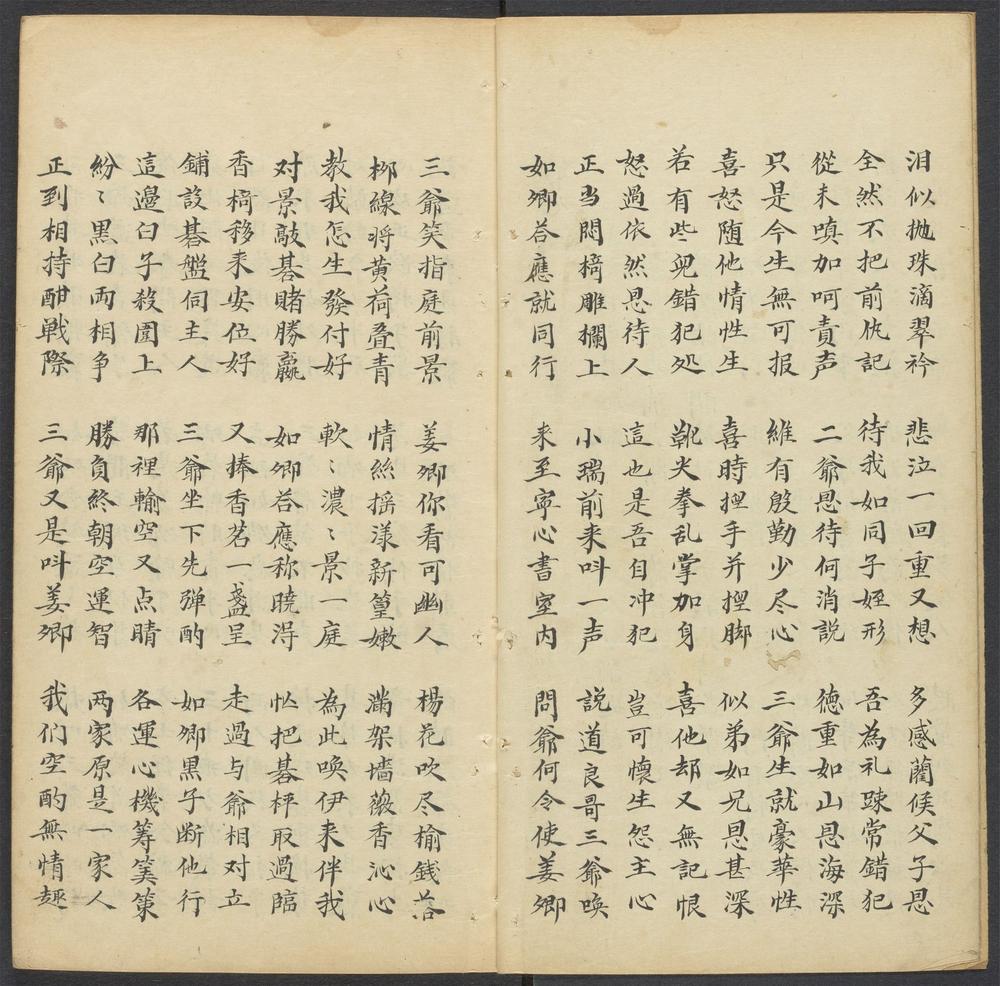 泪似抛珠滴翠衿 悲泣一回重又想 多感蘭侯父子恩
全然不把前仇記 待我如同子姪形 吾為礼踈常錯犯
從未嗔加呵責声 二爺恩待何消説 德重如山恩海深
只是今生無可报 維有殷勤少尽心 三爺生就豪華性
喜怒随他情性生 喜時捏手并捏脚 似弟如兄恩甚深
若有些兒錯犯処 靴尖拳乱掌加身 喜他却又無記恨
怒過依然恩待人 這也是吾自冲犯 豈可懷生怨主心
正当悶椅雕欄上 小瑞前来呌一声 説道良哥三爺唤
如卿荅應就同行 来至寧心書室内 問爺何令使姜卿
三爺笑指庭前景 姜卿你看可幽人 楊花吹尽榆錢落
栁線将黄荷叠青 情絲摇漾新篁嫩 滿架墻薇香沁心
教我怎生發付好 軟〻濃〻景一庭 為此唤伊来伴我
对景敲碁賭勝贏 如卿荅應称暁淂 忙把碁枰取過臨
香椅移来安位好 又捧香茗一盞呈 走過与爺相对立
鋪設碁盤伺主人 三爺坐下先弹酌 如卿黒子断他行
這邉白子殺圍上 那裡輸空又点睛 各運心機筹筭策
紛〻黒白両相争 勝負終朝空運智 两家原是一家人
正到相持酣戦際 三爺又是呌姜卿 我们空酌無情趣